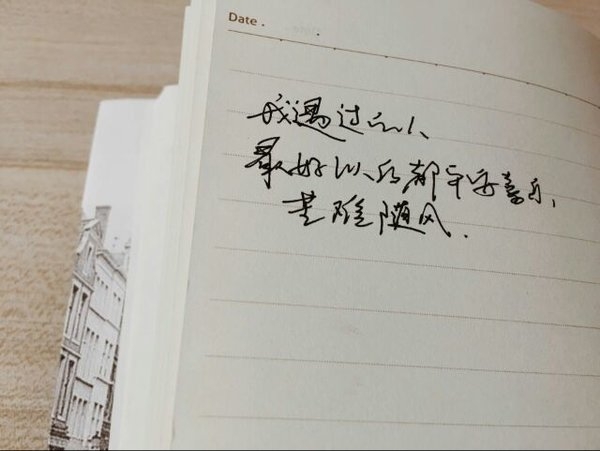 Date .
我遇过的人、
最好以后都平安喜乐、
苦难随风.